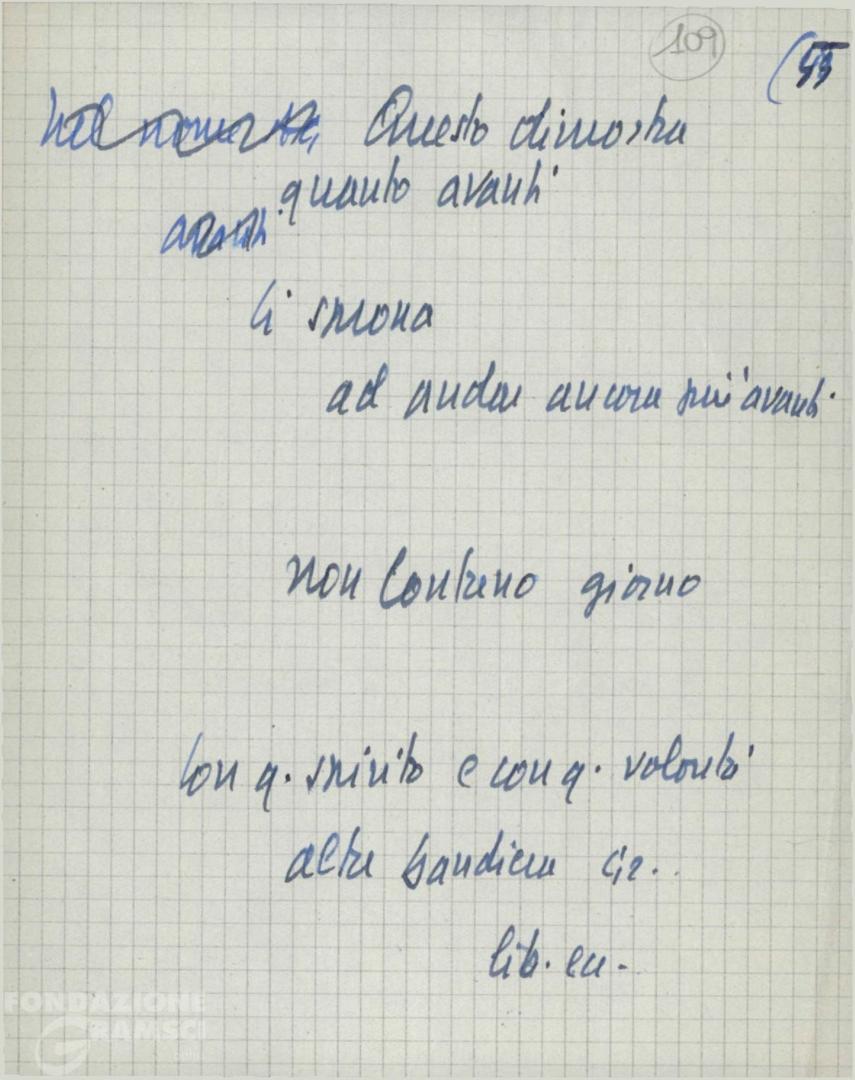 109
55
Nel nome di Questo dimostra
quanto avanti
avanti
Ci sprona
ad andar ancora più avanti.
non Contreno giorno
Con q. spirito e con q. volontà
altre bandiera
lib. eu.
FONDAZIONE
GRAMSCI